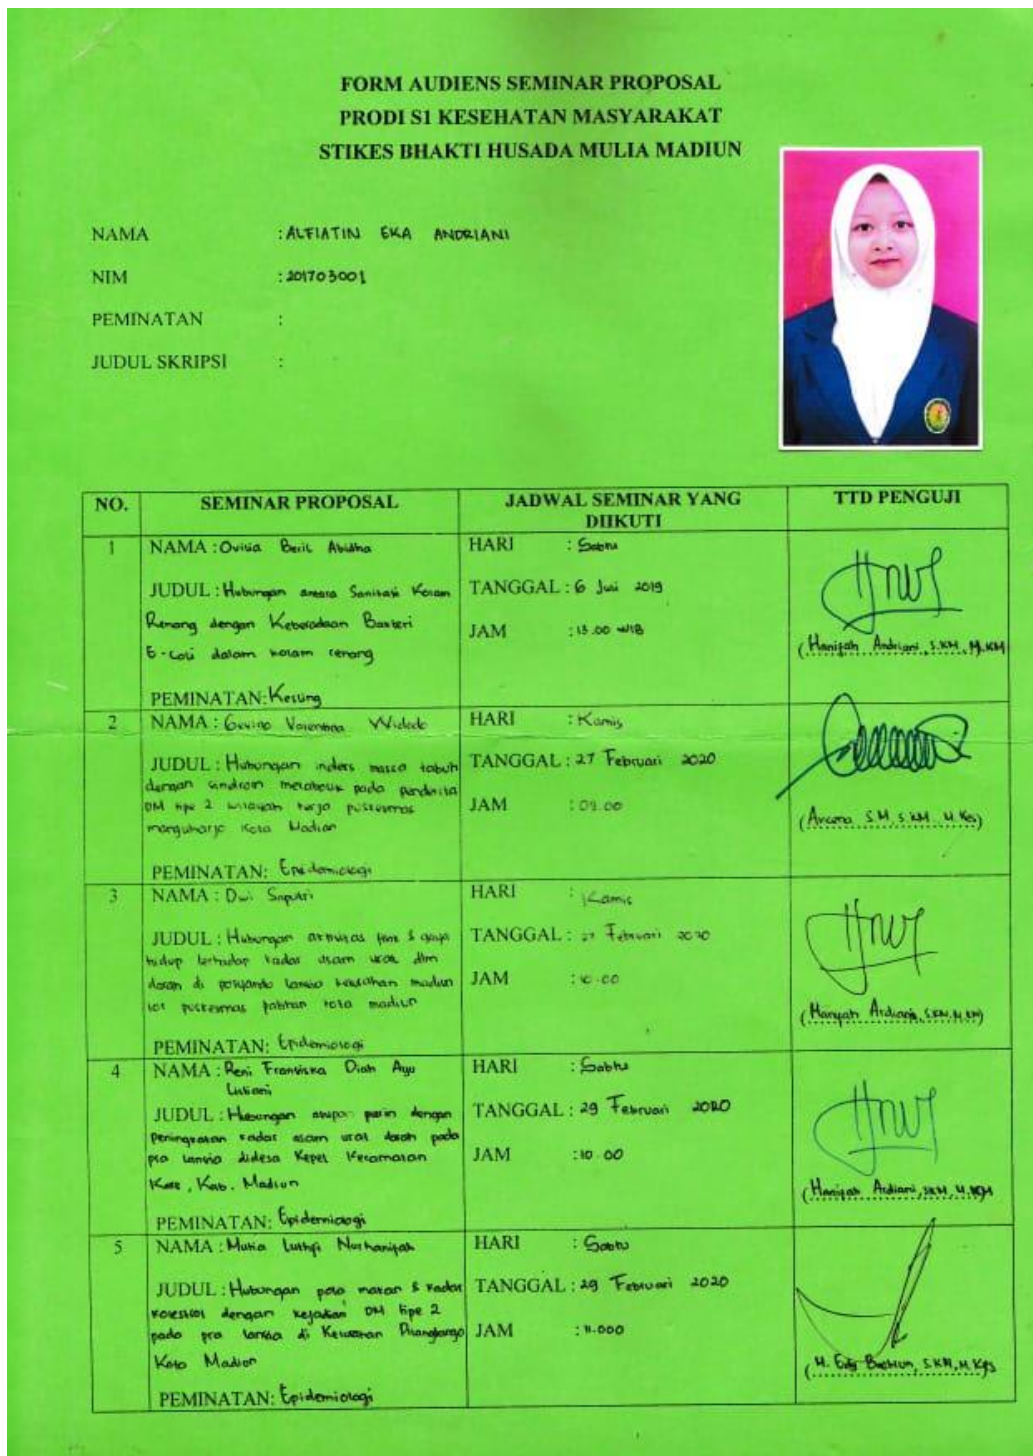 FORM AUDIENS SEMINAR PROPOSAL
PRODI S1 KESEHATAN MASYARAKAT
STIKES BHAKTI HUSADA MULIA MADIUN
NAMA : ALFIATIN EKA ANDRIANI
NIM : 201703001
PEMINATAN :
JUDUL SKRIPSI :
NO. SEMINAR PROPOSAL JADWAL SEMINAR YANG DIIKUTI TTD PENGUJI
1
NAMA : Ovisia Beric Abidha
JUDUL : Hubungan antara Sanitasi Kolam
Renang dengan Keberadaan Bakteri
E-coli dalam kolam renang
PEMINATAN: Kesling
HARI : Sabtu
TANGGAL : 6 Juli 2019
JAM : 13.00 WIB
(Hanifah Ardiani, S.KM, M.KM
2
NAMA : Widodo
JUDUL : Hubungan indeks massa tubuh
dengan sindrom metabolik pada penderita
DM tipe 2 wilayah kerja puskesmas
manguharjo Kota Madiun
PEMINATAN: Epidemiologi
HARI : Kamis
TANGGAL : 27 Februari 2020
JAM : 09.00
(Avicena S.M, S.KM, M.Kes)
3
NAMA : Dwi Saputri
JUDUL : Hubungan aktivitas fisik & gaya
hidup terhadap kadar asam urat dlm
darah di posyandu lansia kelurahan madiun
lor puskesmas patihan kota madiun
PEMINATAN: Epidemiologi
HARI : Kamis
TANGGAL : 27 Februari 2020
JAM : 10.00
(Hanifah Ardiani, S.KM, M.KM)
4
NAMA : Reni Fransiska Diah Ayu
Listiani
JUDUL : Hubungan asupan purin dengan
peningkatan kadar asam urat darah pada
pra lansia didesa Kepet Kecamatan
Kare, Kab. Madiun
PEMINATAN: Epidemiologi
HARI : Sabtu
TANGGAL : 29 Februari 2020
JAM : 10.00
(Hanifah Ardiani, SKM, M.KM
5
NAMA : Mutia Luthfi Nurhanifah
JUDUL : Hubungan pola makan & kadar
kolestrol dengan kejadian DM tipe 2
pada pra lansia di Kelurahan
Kota Madiun
PEMINATAN: Epidemiologi
HARI : Sabtu
TANGGAL : 29 Februari 2020
JAM : 11.000
S.KM, M.Kes